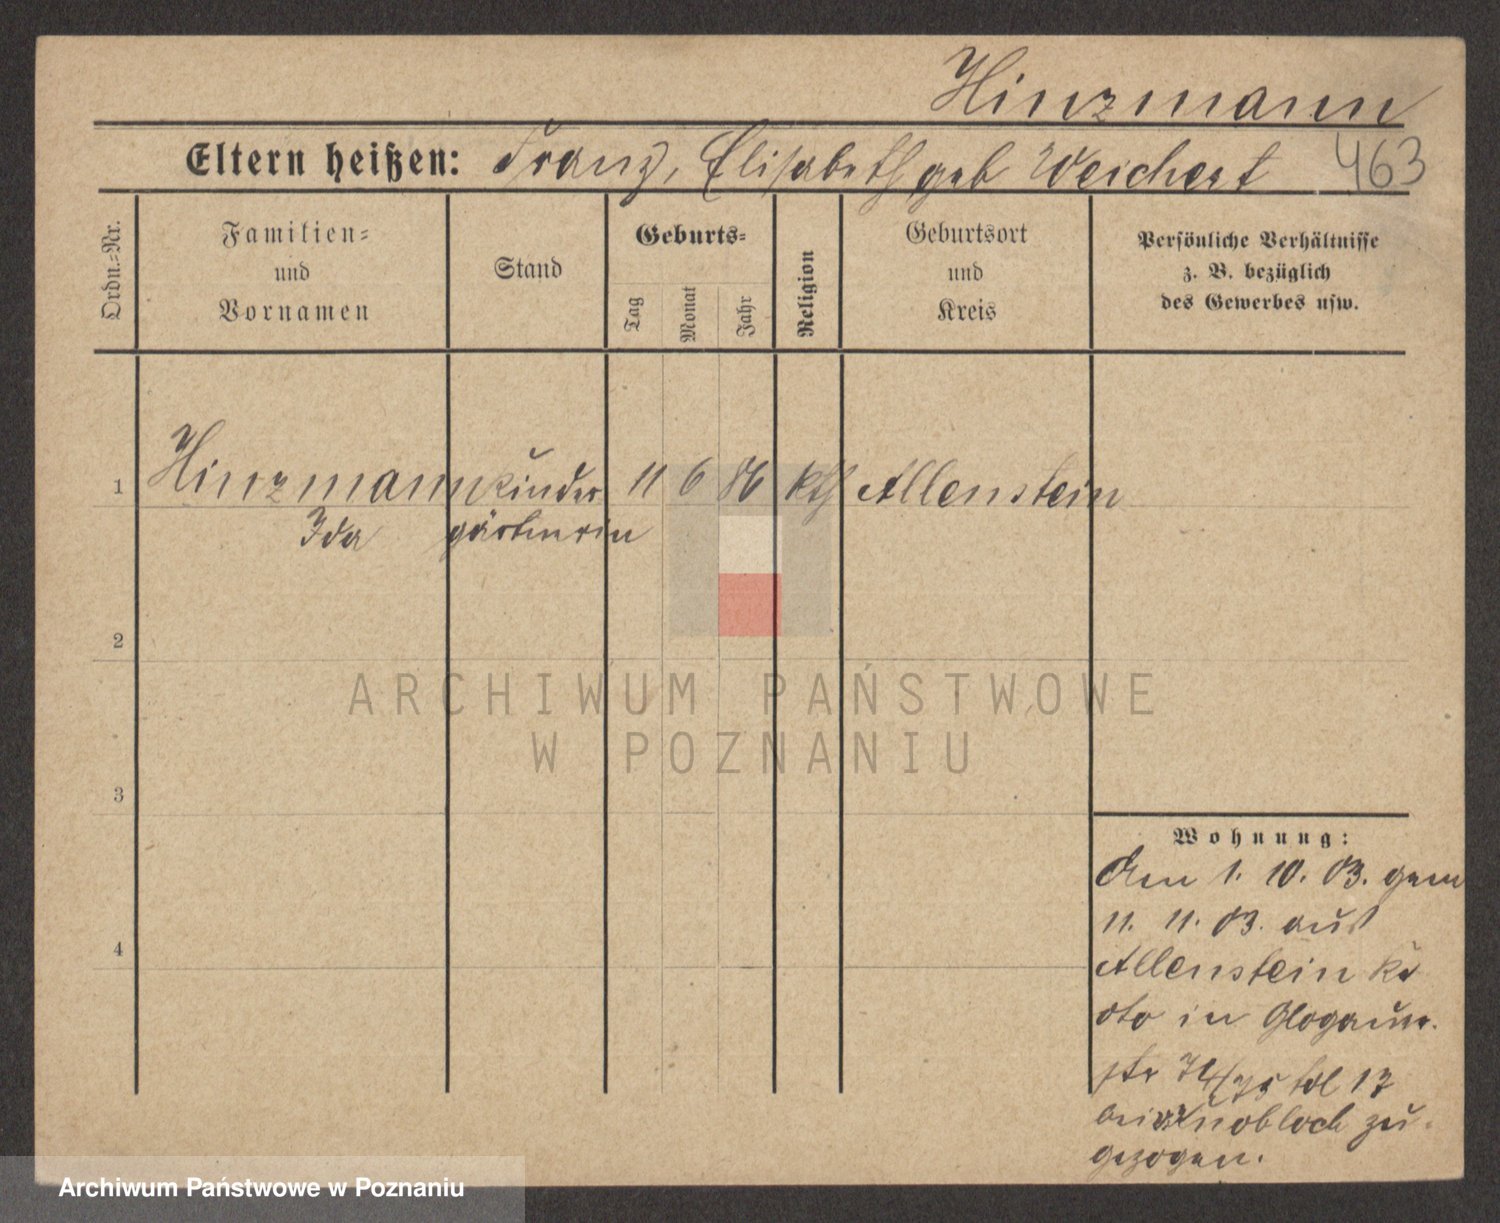 Hinzmann
Eltern heißen: Franz, Elisabeth geb Weichert 463
Ordn.=Nr.
Familien=
und
Vornamen
Stand
Geburts=
Tag
Monat
Jahr
Religion
Geburtsort
und
Kreis
Persönliche Verhältnisse
z. B. bezüglich
des Gewerbes usw.
1 Hinzmann Kinder 11 6 86 kth Allenstein
Ida gärtnerin
2
3
4
Wohnung:
Am 1. 10. 03. gem
11. 11. 03. aus
Allenstein Kr
dto in Glogauer
str 74/75 17
bei Knobloch zu
gezogen.
ARCHIWUM PAŃSTWOWE
W POZNANIU
Archiwum Państwowe w Poznaniu